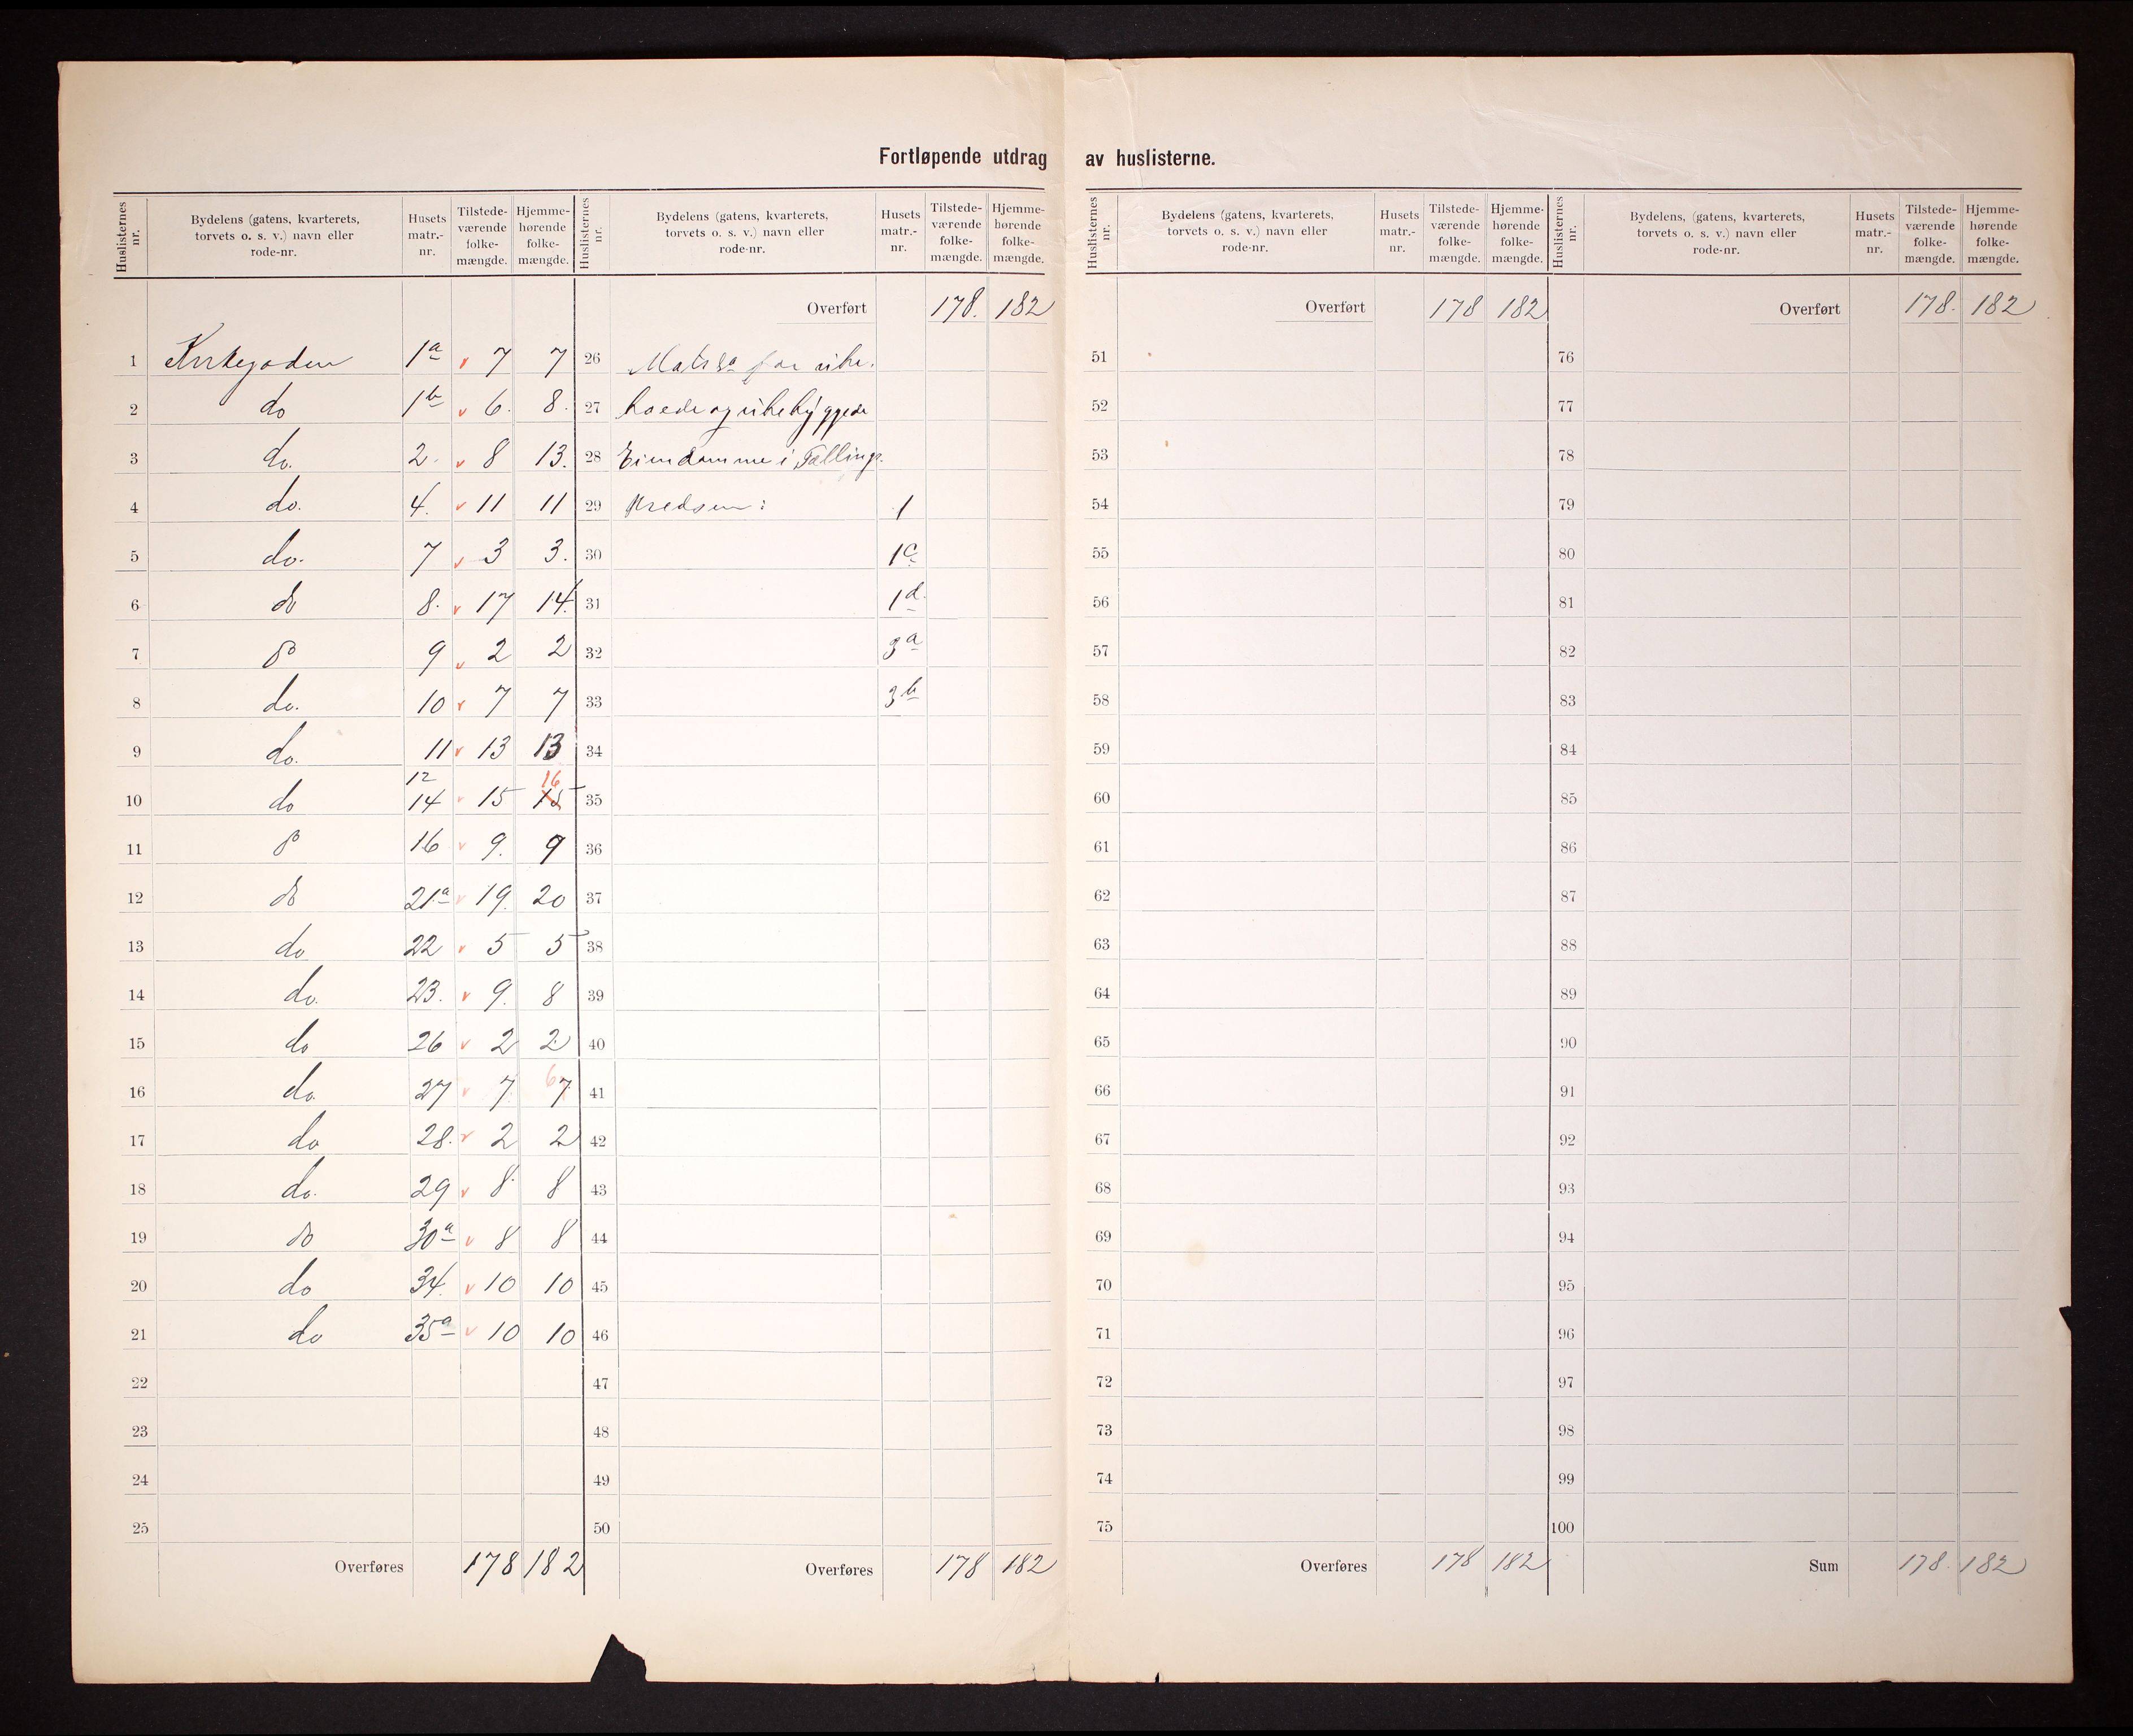 Fortløpende utdrag av huslisterne.
Huslisternes nr. Bydelens (gatens, kvarterets, torvets o. s. v.) navn eller rode-nr. Husets matr.-nr. Tilstede-værende folke-mængde. Hjemme-hørende folke-mængde.
1 Kirkegaden 1a v 7 7
2 do 1b v 6. 8.
3 do. 2. v 8 13.
4 do. 4. v 11 11
5 do. 7 v 3 3.
6 do 8. v 17 14.
7 do 9 v 2 2
8 do. 10 v 7 7
9 do. 11 v 13 13
10 do 12 14 v 15 15 16
11 do 16 v 9. 9
12 do 21a v 19. 20
13 do 22 v 5 5
14 do. 23. v 9. 8
15 do 26 v 2 2
16 do. 27 v 7 7 6
17 do 28. v 2 2
18 do. 29 v 8 8
19 do 30a v 8 8
20 do 34. v 10 10
21 do 35a v 10 10
22
23
24
25
Overføres 178 182
Huslisternes nr. Bydelens (gatens, kvarterets, torvets o. s. v.) navn eller rode-nr. Husets matr.-nr. Tilstede-værende folke-mængde. Hjemme-hørende folke-mængde.
Overført 178. 182
26 for ube.
27 boede og ubebyggede
28 Eiendomme i Tællings
29 kredsen: 1
30 1c
31 1d.
32 3a
33 3b
34
35
36
37
38
39
40
41
42
43
44
45
46
47
48
49
50
Overføres 178 182
Huslisternes nr. Bydelens (gatens, kvarterets, torvets o. s. v.) navn eller rode-nr. Husets matr.-nr. Tilstede-værende folke-mængde. Hjemme-hørende folke-mængde.
Overført 178 182
51
52
53
54
55
56
57
58
59
60
61
62
63
64
65
66
67
68
69
70
71
72
73
74
75
Overføres 178 182
Huslisternes nr. Bydelens, (gatens, kvarterets, torvets o. s. v.) navn eller rode-nr. Husets matr.-nr. Tilstede-værende folke-mængde. Hjemme-hørende folke-mængde.
Overført 178. 182
76
77
78
79
80
81
82
83
84
85
86
87
88
89
90
91
92
93
94
95
96
97
98
99
100
Sum 178. 182